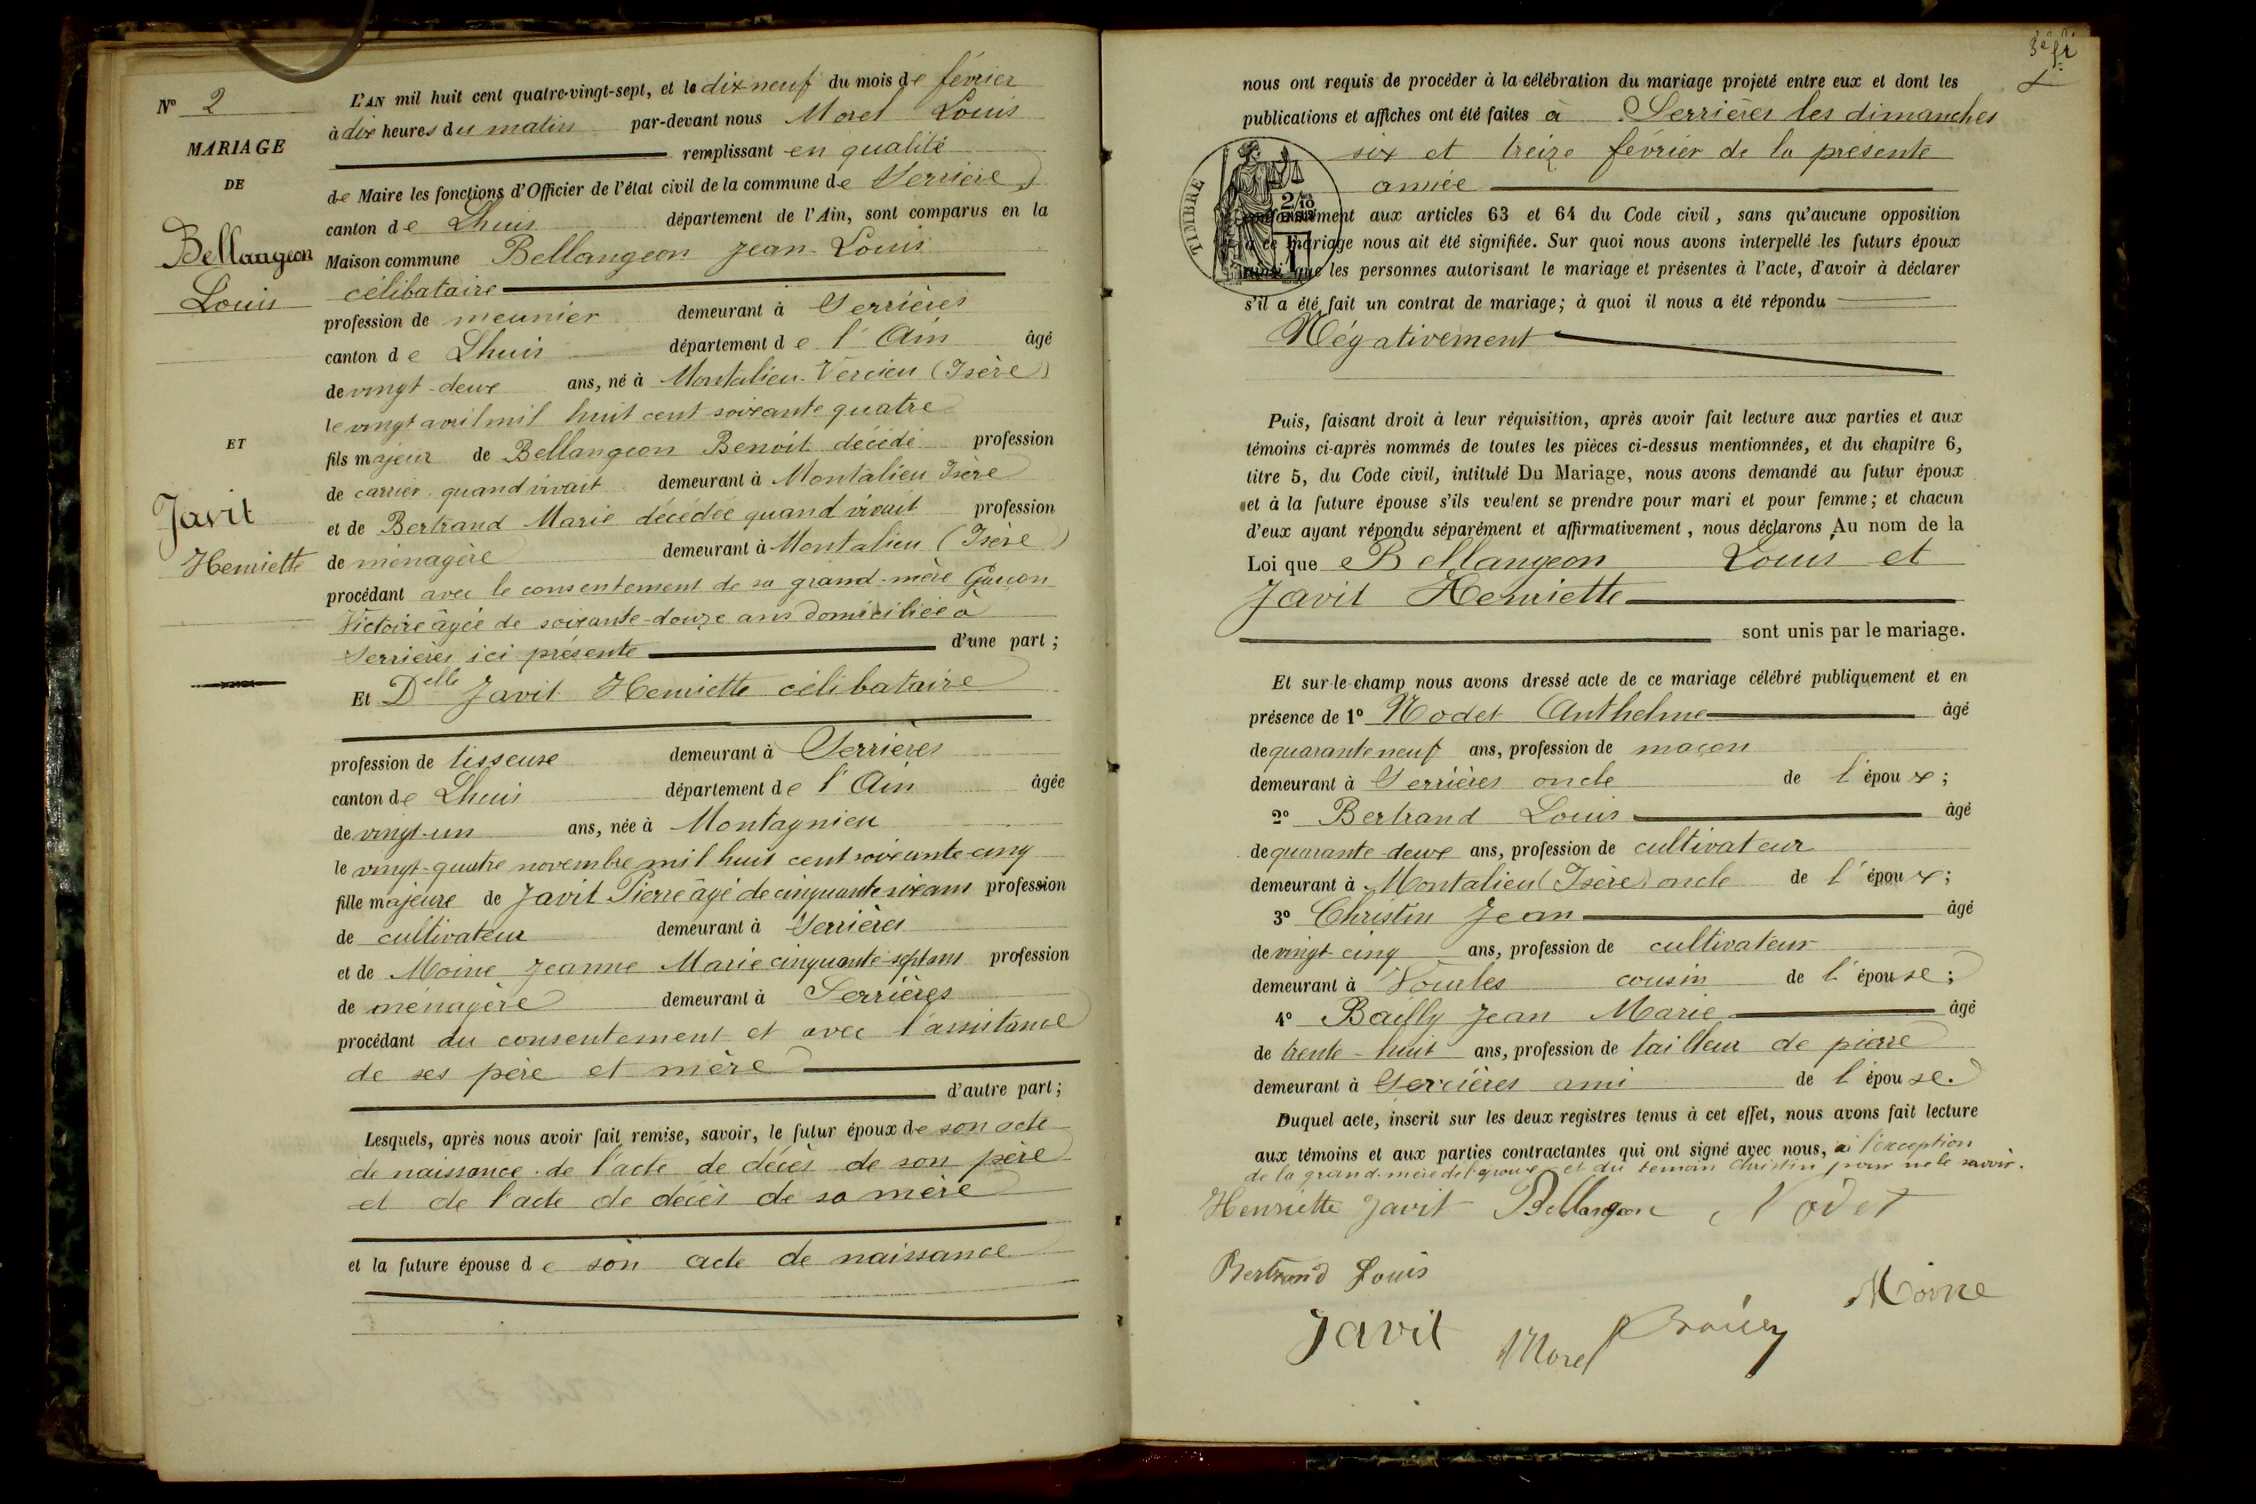 N° 2
MARIAGE
DE
Bellangeon
Louis
ET
Javit
Henriette
L'AN mil huit cent quatre-vingt-sept, et le dix-neuf du mois de février
à dix heures du matin par-devant nous Morel Louis
remplissant en qualité
de Maire les fonctions d'Officier de l'état civil de la commune de Serrières
canton de Lhuis département de l'Ain, sont comparus en la
Maison commune Bellangeon Jean-Louis
célibataire
profession de meunier demeurant à Serrières
canton de Lhuis département de l'Ain âgé
de vingt-deux ans, né à Montalieu-Vercieu (Isère)
le vingt avril mil huit cent soixante quatre
fils majeur de Bellangeon Benoit décédé profession
de carrier quand vivait demeurant à Montalieu Isère
et de Bertrand Marie décédée quand vivait profession
de ménagère demeurant à Montalieu (Isère)
procédant avec le consentement de sa grand-mère
Victoire âgée de soixante-douze ans domiciliée à
Serrières ici présente d'une part ;
Et Delle Javit Henriette célibataire
profession de tisseuse demeurant à Serrières
canton de Lhuis département de l'Ain âgée
de vingt-un ans, née à Montagnieu
le vingt-quatre novembre mil huit cent soixante-cinq
fille majeure de Javit Pierre âgé de cinquante-six ans profession
de cultivateur demeurant à Serrières
et de Moine Jeanne Marie cinquante-sept ans profession
de ménagère demeurant à Serrières
procédant du consentement et avec l'assistance
de ses père et mère
d'autre part ;
Lesquels, après nous avoir fait remise, savoir, le futur époux de son acte
de naissance de l'acte de décès de son père
et de l'acte de décès de sa mère
et la future épouse de son acte de naissance
nous ont requis de procéder à la célébration du mariage projeté entre eux et dont les
publications et affiches ont été faites à Serrières les dimanches
six et treize février de la présente
année
TIMBRE
2/10
conformément aux articles 63 et 64 du Code civil, sans qu'aucune opposition
à ce mariage nous ait été signifiée. Sur quoi nous avons interpellé les futurs époux
ainsi que les personnes autorisant le mariage et présentes à l'acte, d'avoir à déclarer
s'il a été fait un contrat de mariage ; à quoi il nous a été répondu
Négativement
Puis, faisant droit à leur réquisition, après avoir fait lecture aux parties et aux
témoins ci-après nommés de toutes les pièces ci-dessus mentionnées, et du chapitre 6,
titre 5, du Code civil, intitulé Du Mariage, nous avons demandé au futur époux
et à la future épouse s'ils veulent se prendre pour mari et pour femme ; et chacun
d'eux ayant répondu séparément et affirmativement, nous déclarons Au nom de la
Loi que Bellangeon Louis et
Javit Henriette
sont unis par le mariage.
Et sur-le-champ nous avons dressé acte de ce mariage célébré publiquement et en
présence de 1° Nodet Anthelme âgé
de quarante neuf ans, profession de maçon
demeurant à Serrières oncle de l'époux ;
2° Bertrand Louis âgé
de quarante-deux ans, profession de cultivateur
demeurant à Montalieu (Isère) oncle de l'époux ;
3° Christin Jean âgé
de vingt-cinq ans, profession de cultivateur
demeurant à Vourles cousin de l'épouse ;
4° Bailly Jean Marie âgé
de trente-huit ans, profession de tailleur de pierre
demeurant à Serrières ami de l'épouse.
Duquel acte, inscrit sur les deux registres tenus à cet effet, nous avons fait lecture
aux témoins et aux parties contractantes qui ont signé avec nous, à l'exception
de la grand-mère de l'époux et du témoin Christin pour ne le savoir.
Henriette Javit Bellangeon Nodet
Bertrand Louis
Moine
Javit Morel